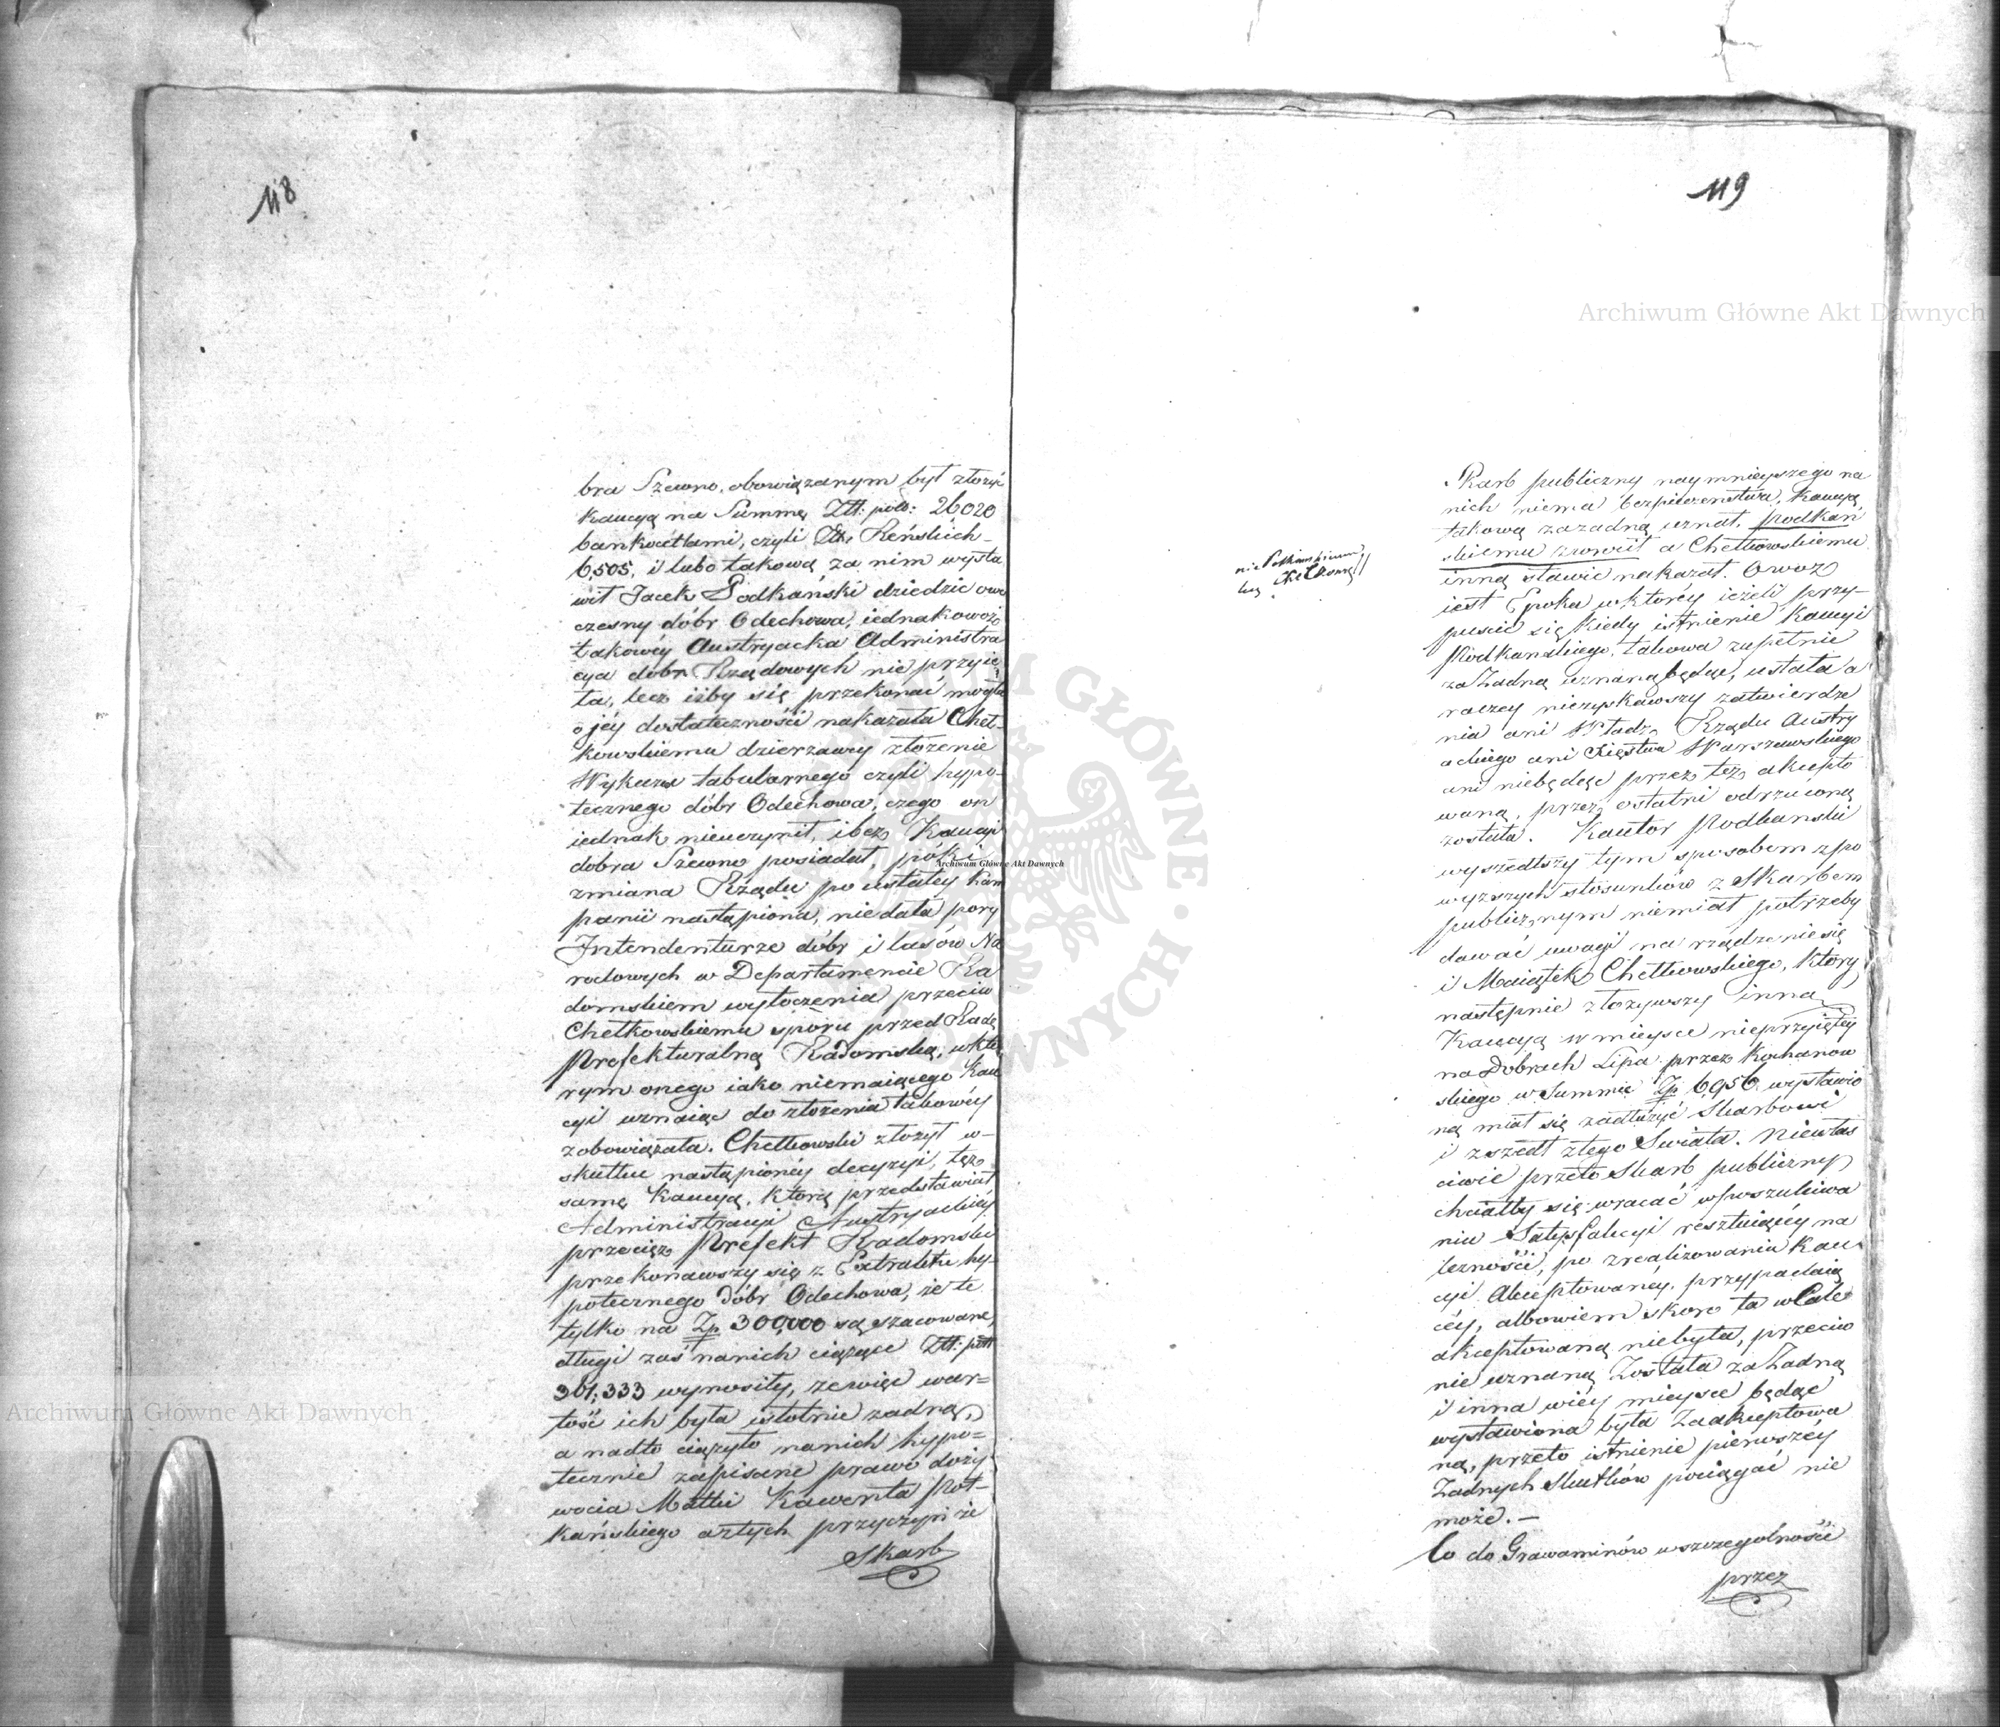 118
bra Szewno, obowiązanym był złożyć
kaucyą na Summę Złł: pols: 26020
bankocetlami, czyli Złł. Reńskich
6,505, i lubo takową za nim wysta
wił Jacek Podkański dziedzic ów
czesny dóbr Odechowa, iednakowoż
takowéy Austryacka Administra
cya dóbr Rządowych nie przyię
ta, lecz iżby się przekonać mogła
o jéy dostateczności nakazała Cheł-
kowskiemu dzierzawcy złożenie
Wykazu tabularnego czyli hypo-
tecznego dóbr Odechowa, czego on
iednak nieuczynił, i bez Kaucyi
dobra Szewno posiadał, póki
zmiana Rządu po ustałey Kam
panii nastąpiona, nie dała pory
Intendenturze dóbr i lasów Na
rodowych w Departamencie Ra
domskiem wytoczenia przeciw
Chełkowskiemu sporu przed Radę
Prefekturalną Radomską, w któ
rym onego iako niemaiącego kau
cyi uznaiąc do złożenia takowéy
zobowiązała. Chełkowski złożył w-
skutku nastąpionéy decyzyi, też
samę Kaucyą, którą przedstawiał
Administracyi Austryackiéy
przecięż Prefekt Radomski
przekonawszy się z Extraktu hy-
potecznego Dóbr Odechowa, że te
tylko na Zp 300,000 są szacowane,
długi zaś nanich ciążące Złł: pols
301,333 wynosiły, ze więc war=
tość ich była istotnie zadną,
a nadto ciążyło nanich hypo=
tecznie zapisane prawo doży
wocia Matki Kawenta Pot-
kańskiego aztych przyczyn że
Skarb
119
Skarb publiczny naymnieyszego na
nich niema bezpieczenstwa, kaucyą
takową zazadną uznał, Podkań
skiemu zwrócił a Chełkowskiemu
inną stawić nakazał. Owoż
iest Epoka w którey ieżeli przy-
puscić się kiedy istnienie Kaucyi
Podkanskiego, takowa zupełnie
za Zadną uznaną będąc, ustała a
raczey nieuzyskawszy zatwierdze
nia ani Władz Rządu Austry
ackiego ani Xięstwa Warszawskiego
ani niebędąc przez też akcepto
waną, przez ostatni odrzuconą
została. Kautor Podkanski
wyszedłszy tym sposobem zpo
wyzszych stosunków z Skarbem
publicznym niemiał potrzeby
dawać uwagi na rządzenie się
i Maiątek Chełkowskiego, który
następnie złożywszy inną
Kaucyą w mieysce nieprzyiętey
na Dobrach Lipa przez Kochanow
skiego w Summie Zp 6,956 wystawio
ną miał się zadłużyć Skarbowi
i zszedł ztego Swiata. Niewłas
ciwie przeto Skarb publiczny
chciałby się wracać w poszukiwa
niu Satysfakcyi resztuiącéy na
leżności, po zrealizowaniu Kau
cyi Akceptowanéy, przypadaią
céy, albowiem skoro ta w Cale
akceptowaną niebyła, przeciw
nie uznaną Została za Zadną
i inna wiéy mieysce będąc
wystawiona była Zaakceptowa
ną, przeto istnienie pierwszéy
Zadnych Skutków pociągać nie
może. —
Co do Grawaminów wszczególności
przez